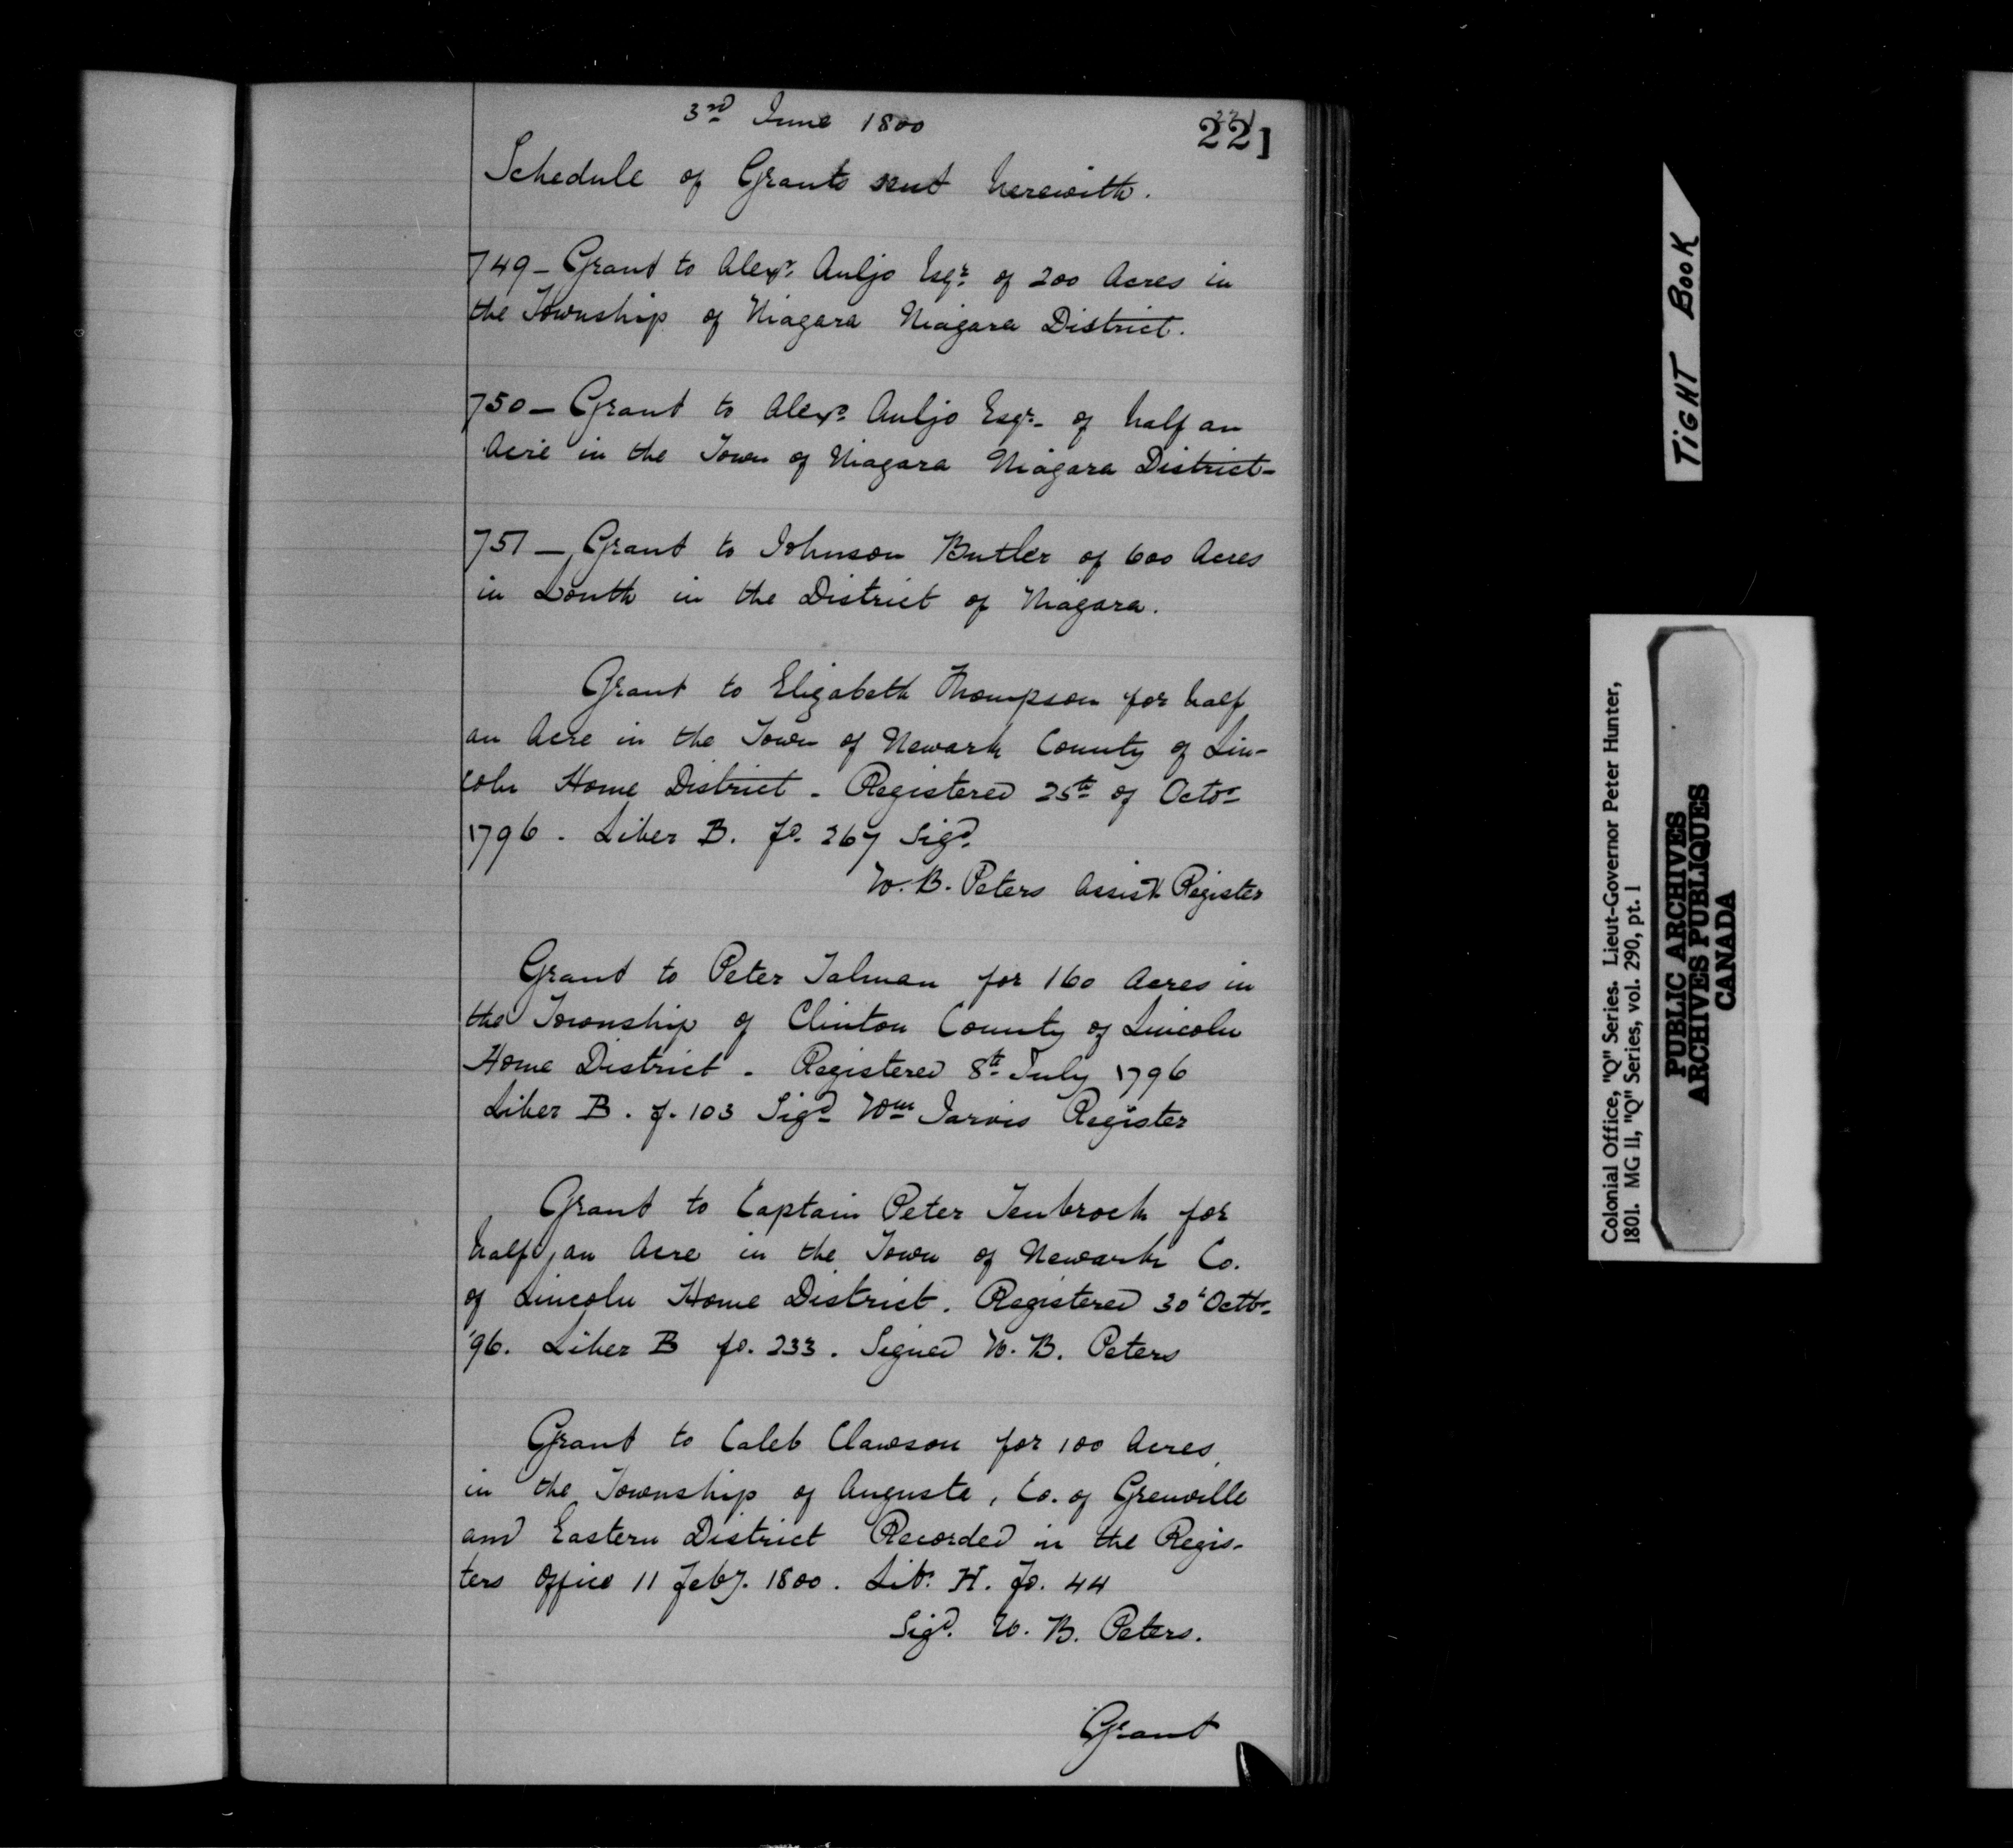 3rd June 1800
221
Schedule of Grants sent herewith.
749 - Grant to Alexr. Auljo Esqr. of 200 Acres in
the Township of Niagara Niagara District.
750 - Grant to Alexr. Auljo Esqr. of half an
Acre in the Town of Niagara Niagara District -
751 - Grant to Johnson Butler of 600 Acres
in Louth in the District of Niagara.
Grant to Elizabeth Thompson for half
an Acre in the Town of Newark County of Lin-
coln Home District - Registered 25th of Octor
1796 - Liber B. fo. 267 Sigd.
W. B. Peters Assist. Register
Grant to Peter Talman for 160 Acres in
the Township of Clinton County of Lincoln
Home District - Registered 8th July 1796
Liber B. f. 103 Sigd Wm Jarvis Register
Grant to Captain Peter Tenbroek for
half an Acre in the Town of Newark Co.
of Lincoln Home District. Registered 30t Octbr
'96. Liber B fo. 233. Signed W. B. Peters
Grant to Caleb Clawson for 100 Acres,
in the Township of Augusta, Co. of Grenville
and Eastern District Recorded in the Regis-
ters Office 11 Feby. 1800. Lib. H. fo. 44
Sigd. W. B. Peters.
Grant
TIGHT BOOK
Colonial Office, "Q" Series. Lieut-Governor Peter Hunter,
1801. MG 11, "Q" Series, vol. 290, pt. 1
PUBLIC ARCHIVES
ARCHIVES PUBLIQUES
CANADA